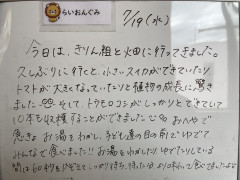 らいおんぐみ
7/19(水)
今日は、きりん組と畑に行ってきました。
久しぶりに行くと、小さいスイカができていたり
トマトが大きくなっていたりと植物の成長に驚き
ました。そして、トウモロコシがしっかりとできていて
10本も収穫することができました。おやつで
食べようとお湯をわかし、子ども達の目の前でゆでて
みんなで食べました!! お湯をわかしたり、ゆでたりしている
間は60秒を
食べましたよ